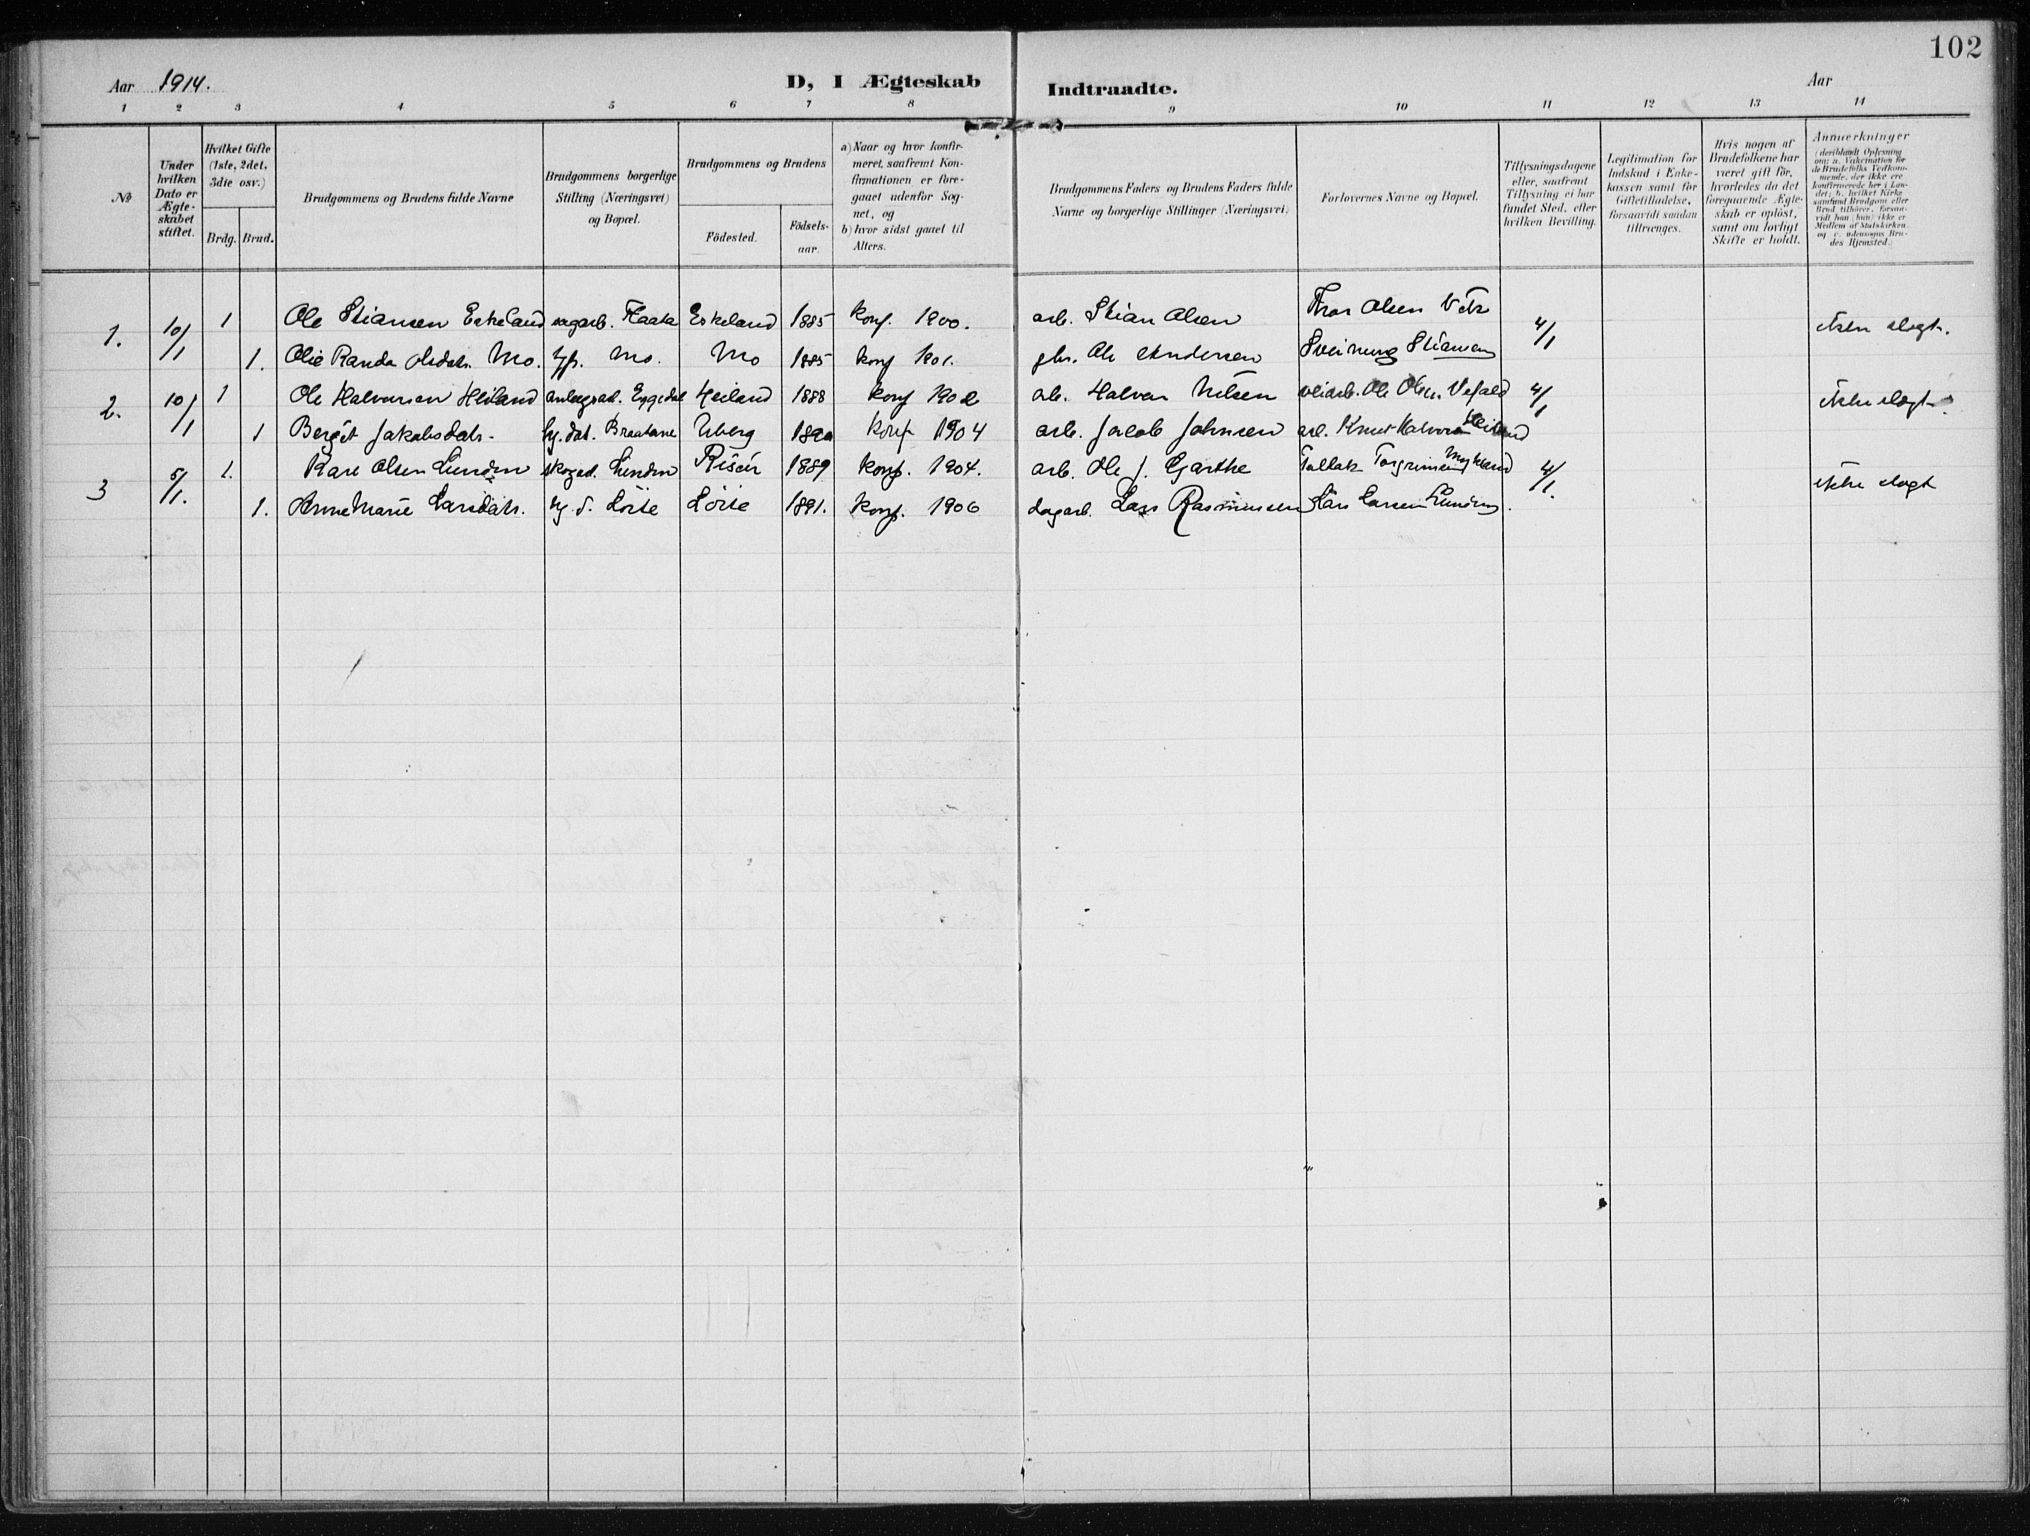 102
Aar 1914. D, I Ægteskab Indtraadte. Aar
1 2 3 4 5 6 7 8 9 10 11 12 13 14
No
Under hvilken Dato er Ægteskabet stiftet.
Hvilket Gifte (1ste, 2det, 3die osv.)
Brdg. Brud.
Brudgommens og Brudens fulde Navne
Brudgommens borgerlige Stilling (Næringsvei) og Bopæl.
Brudgommens og Brudens
Fødested. Fødselsaar.
a) Naar og hvor konfirmeret, saafremt Konfirmationen er foregaaet udenfor Sognet, og
b) hvor sidst gaaet til Alters.
Brudgommens Faders og Brudens Faders fulde Navne og borgerlige Stillinger (Næringsvei)
Forlovernes Navne og Bopæl.
Tillysningsdagene eller, saafremt Tillysning ei har fundet Sted, efter hvilken Bevilling.
Legitimation for Indskud i Enkekassen samt for Giftetilladelse, forsaavidt saadan tiltrænges.
Hvis nogen af Brudefolkene har været gift før, hvorledes da det foregaaende Ægteskab er opløst, samt om lovligt Skifte er holdt.
Anmerkninger (deriblandt Oplysning om: a. Vakcination for de Brudefolks Vedkommende, der ikke ere konfirmerede her i Landet; b. hvilket Kirkesamfund Brudgom eller Brud tilhører, forsaavidt han (hun) ikke er Medlem af Statskirken, og c. udensogns Brudes Hjemsted.)
1. 10/1 1 Ole Stiansen Eskeland sagarb. Flaata Eskeland 1885 konf. 1900. arb. Stian Olsen Thor Olsen 4/1 ikke slegt.
1. Olie Randa Olsdatr. Mo. Mo. Mo 1885 konf 1901. gbr. Ole Andersen Sveinung Stiansen
2. 10/1 1 Ole Halvorsen Heiland anlægsarb. Eggedal Heiland 1888 konf 1902 arb. Halvor Nilsen veiarb. Ole Olsen 4/1 ikke slegt.
1 Bergit Jakobsdatr. Braatane Urberg konf 1904 arb. Jacob Johnsen arb. Knut Halvorsen Heiland
3 5/1. 1. Kare Olsen Lunden skogarb. Lunden Risør 1889 konf. 1904. arb. Ole J. Garthe Tallak Torgrimsen Mykland 4/1. ikke slegt
1. Anne Marie Larsdatr. 1891. konf. 1906 dagarb. Lars Rasmussen Lars Larsen Lunden.